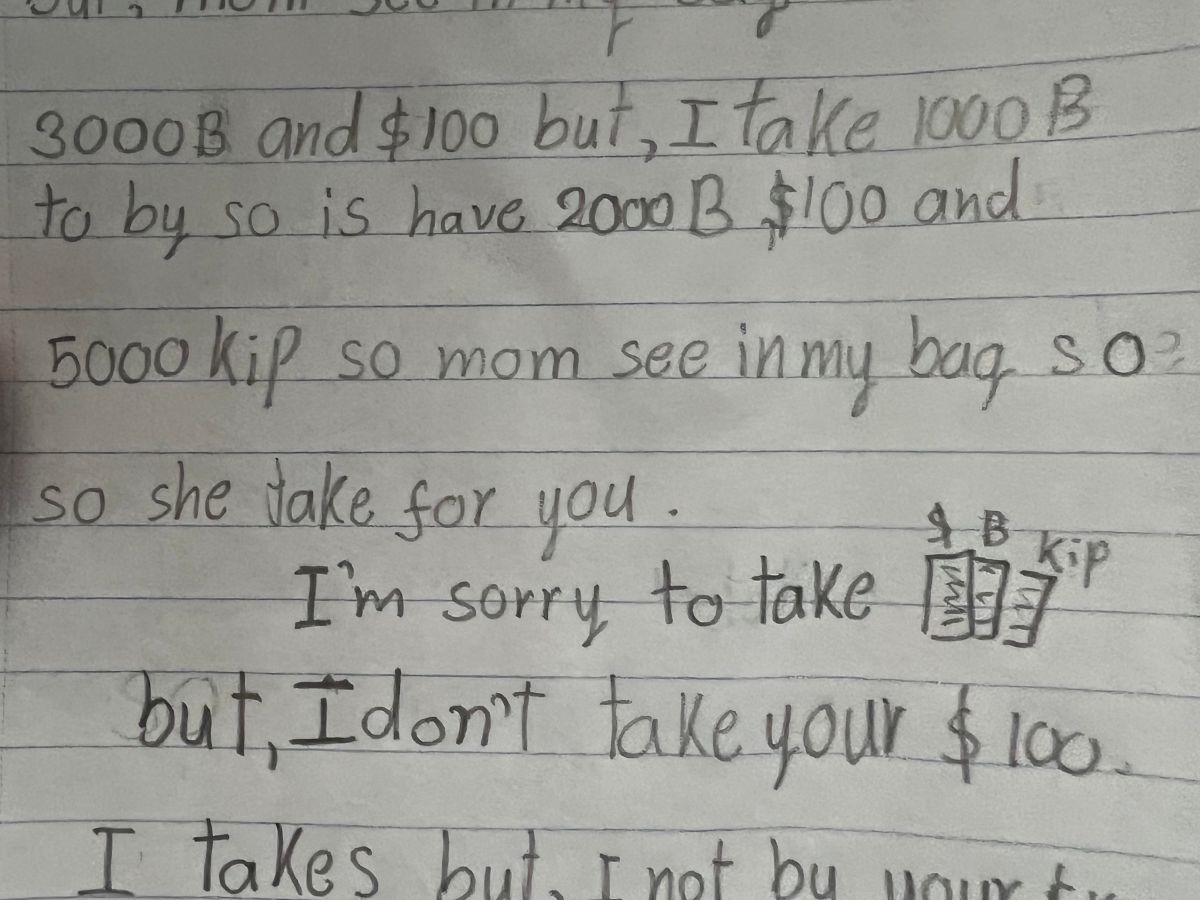 mom see in my
3000B and $100 but, I take 1000B
to by so is have 2000B $100 and
5000 kip so mom see in my bag so
so she take for you.
$ B kip
I'm sorry to take
but, I don't take your $100.
I takes but, I not by your